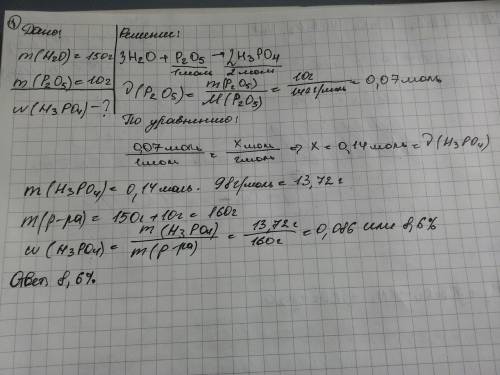 ④ Дано:
m(H2O) = 150г
m(P2O5) = 10г
w(H3PO4) - ?
Решение:
3H2O + P2O5 → 2H3PO4
1моль 2моль
ν(P2O5) = m(P2O5) / M(P2O5) = 10г / 142г/моль = 0,07моль
По уравнению:
0,07моль / 1моль = xмоль / 2моль ⇒ x = 0,14моль = ν(H3PO4)
m(H3PO4) = 0,14моль · 98г/моль = 13,72г
m(р-ра) = 150г + 10г = 160г
w(H3PO4) = m(H3PO4) / m(р-ра) = 13,72г / 160г = 0,086 или 8,6%
Ответ: 8,6%